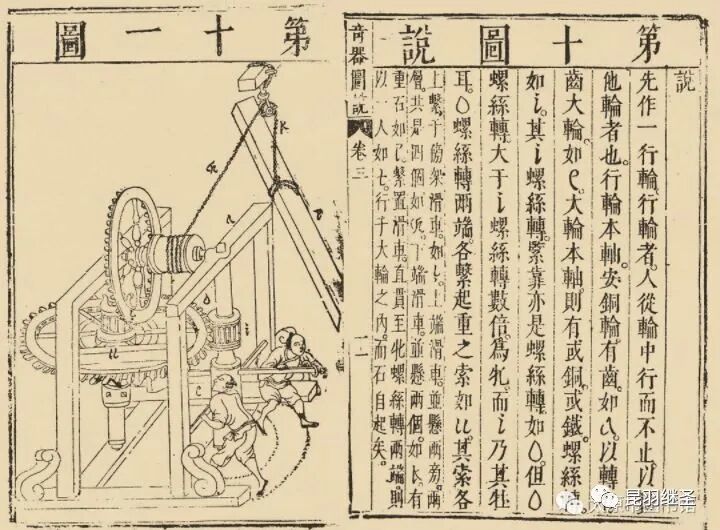 第十圖說
說
先作一行輪。行輪者。人從輪中行而不止。以
他輪者也。行輪本軸。安銅輪有齒。如a。以轉
齒大輪。如e。大輪本軸則有或銅。或鐵螺絲轉
如i。其i螺絲轉。緊靠亦是螺絲轉。如o。但o
螺絲轉。大于i螺絲轉數倍。為牝。而i乃其牡
耳。o螺絲轉兩端。各繫起重之索。如u。其索各
上繫于傍架滑車。如l。上端滑車。並懸兩旁。兩
層。共是四個。如n。下端滑車。並懸兩個。如k。有
重石如c。繫置滑車。直貫至牝螺絲轉兩端。則
以一人如七。行于大輪之內。而石自起矣。
奇器圖說
卷三
第十一圖
昆羽继圣